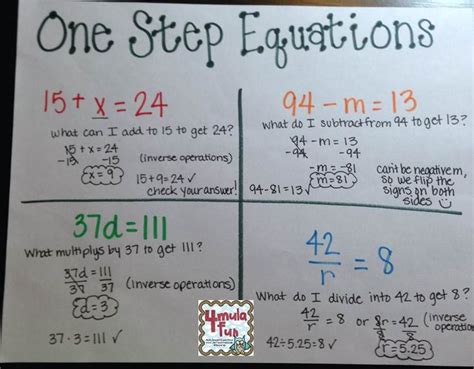 One Step Equations
15 + x = 24
What can I add to 15 to get 24?
15 + x = 24
-15 -15 (inverse operations)
x = 9
15+9=24 ✓
check your answer!
94 - m = 13
What do I subtract from 94 to get 13?
94 - m = 13
-94 -94
-m = -81
m=81
can't be negative m,
so we flip the
signs on both
sides
94-81=13 ✓
37d = 111
What multiplys by 37 to get 111?
37d = 111
37 37 (inverse operations)
d = 3
37 · 3 = 111 ✓
42
r = 8
What do I divide into 42 to get 8?
42
r = 8 or 8r = 42 (inverse
8 8 operations)
r = 5.25
42÷5.25 = 8 ✓
4mula
fun